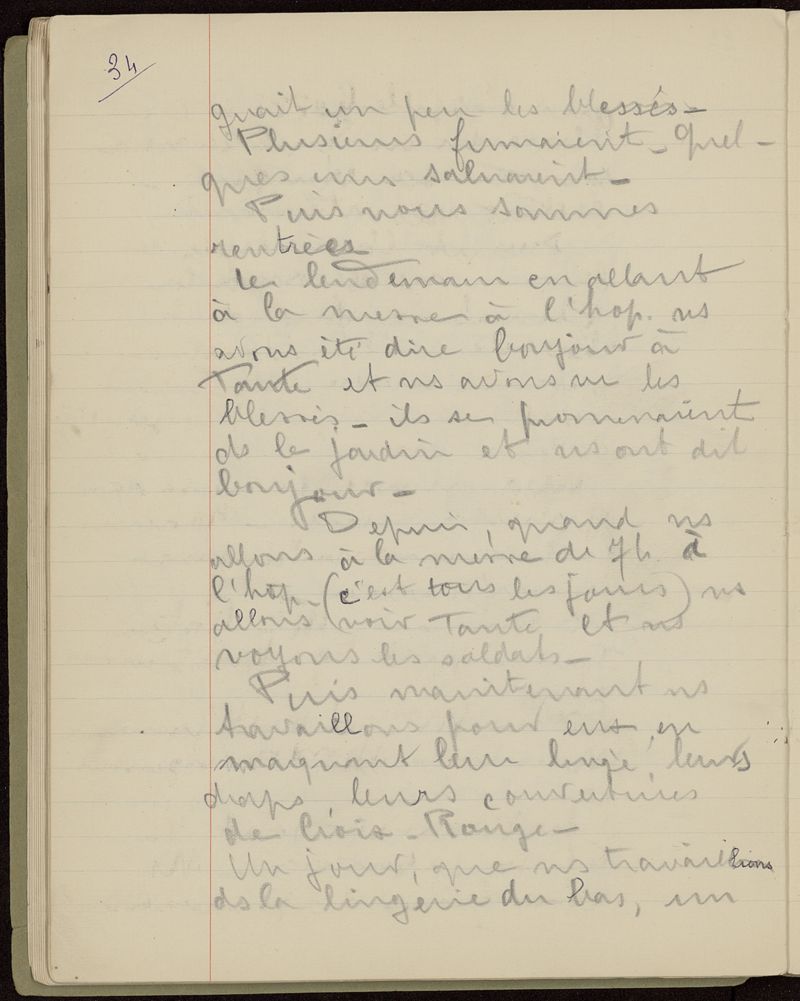 34
guait un peu les blessés_
Plusieurs fumaient_ Quel-
ques uns saluaient_
Puis nous sommes
rentrées
Le lendemain en allant
à la messe à l'hop. ns
avons été dire bonjour à
Tante et ns avons vu les
blessés_ ils se promenaient
ds le jardin et ns ont dit
bonjour_
Depuis, quand ns
allons à la messe de 7h à
l'hop. (c'est tous les jours) ns
allons voir Tante et ns
voyons les soldats_
Puis maintenant ns
travaillons pour eux en
marquant leur linge, leurs
draps, leurs couvertures
de Croix-Rouge_
Un jour, que ns travaillions
ds la lingerie du bas, un